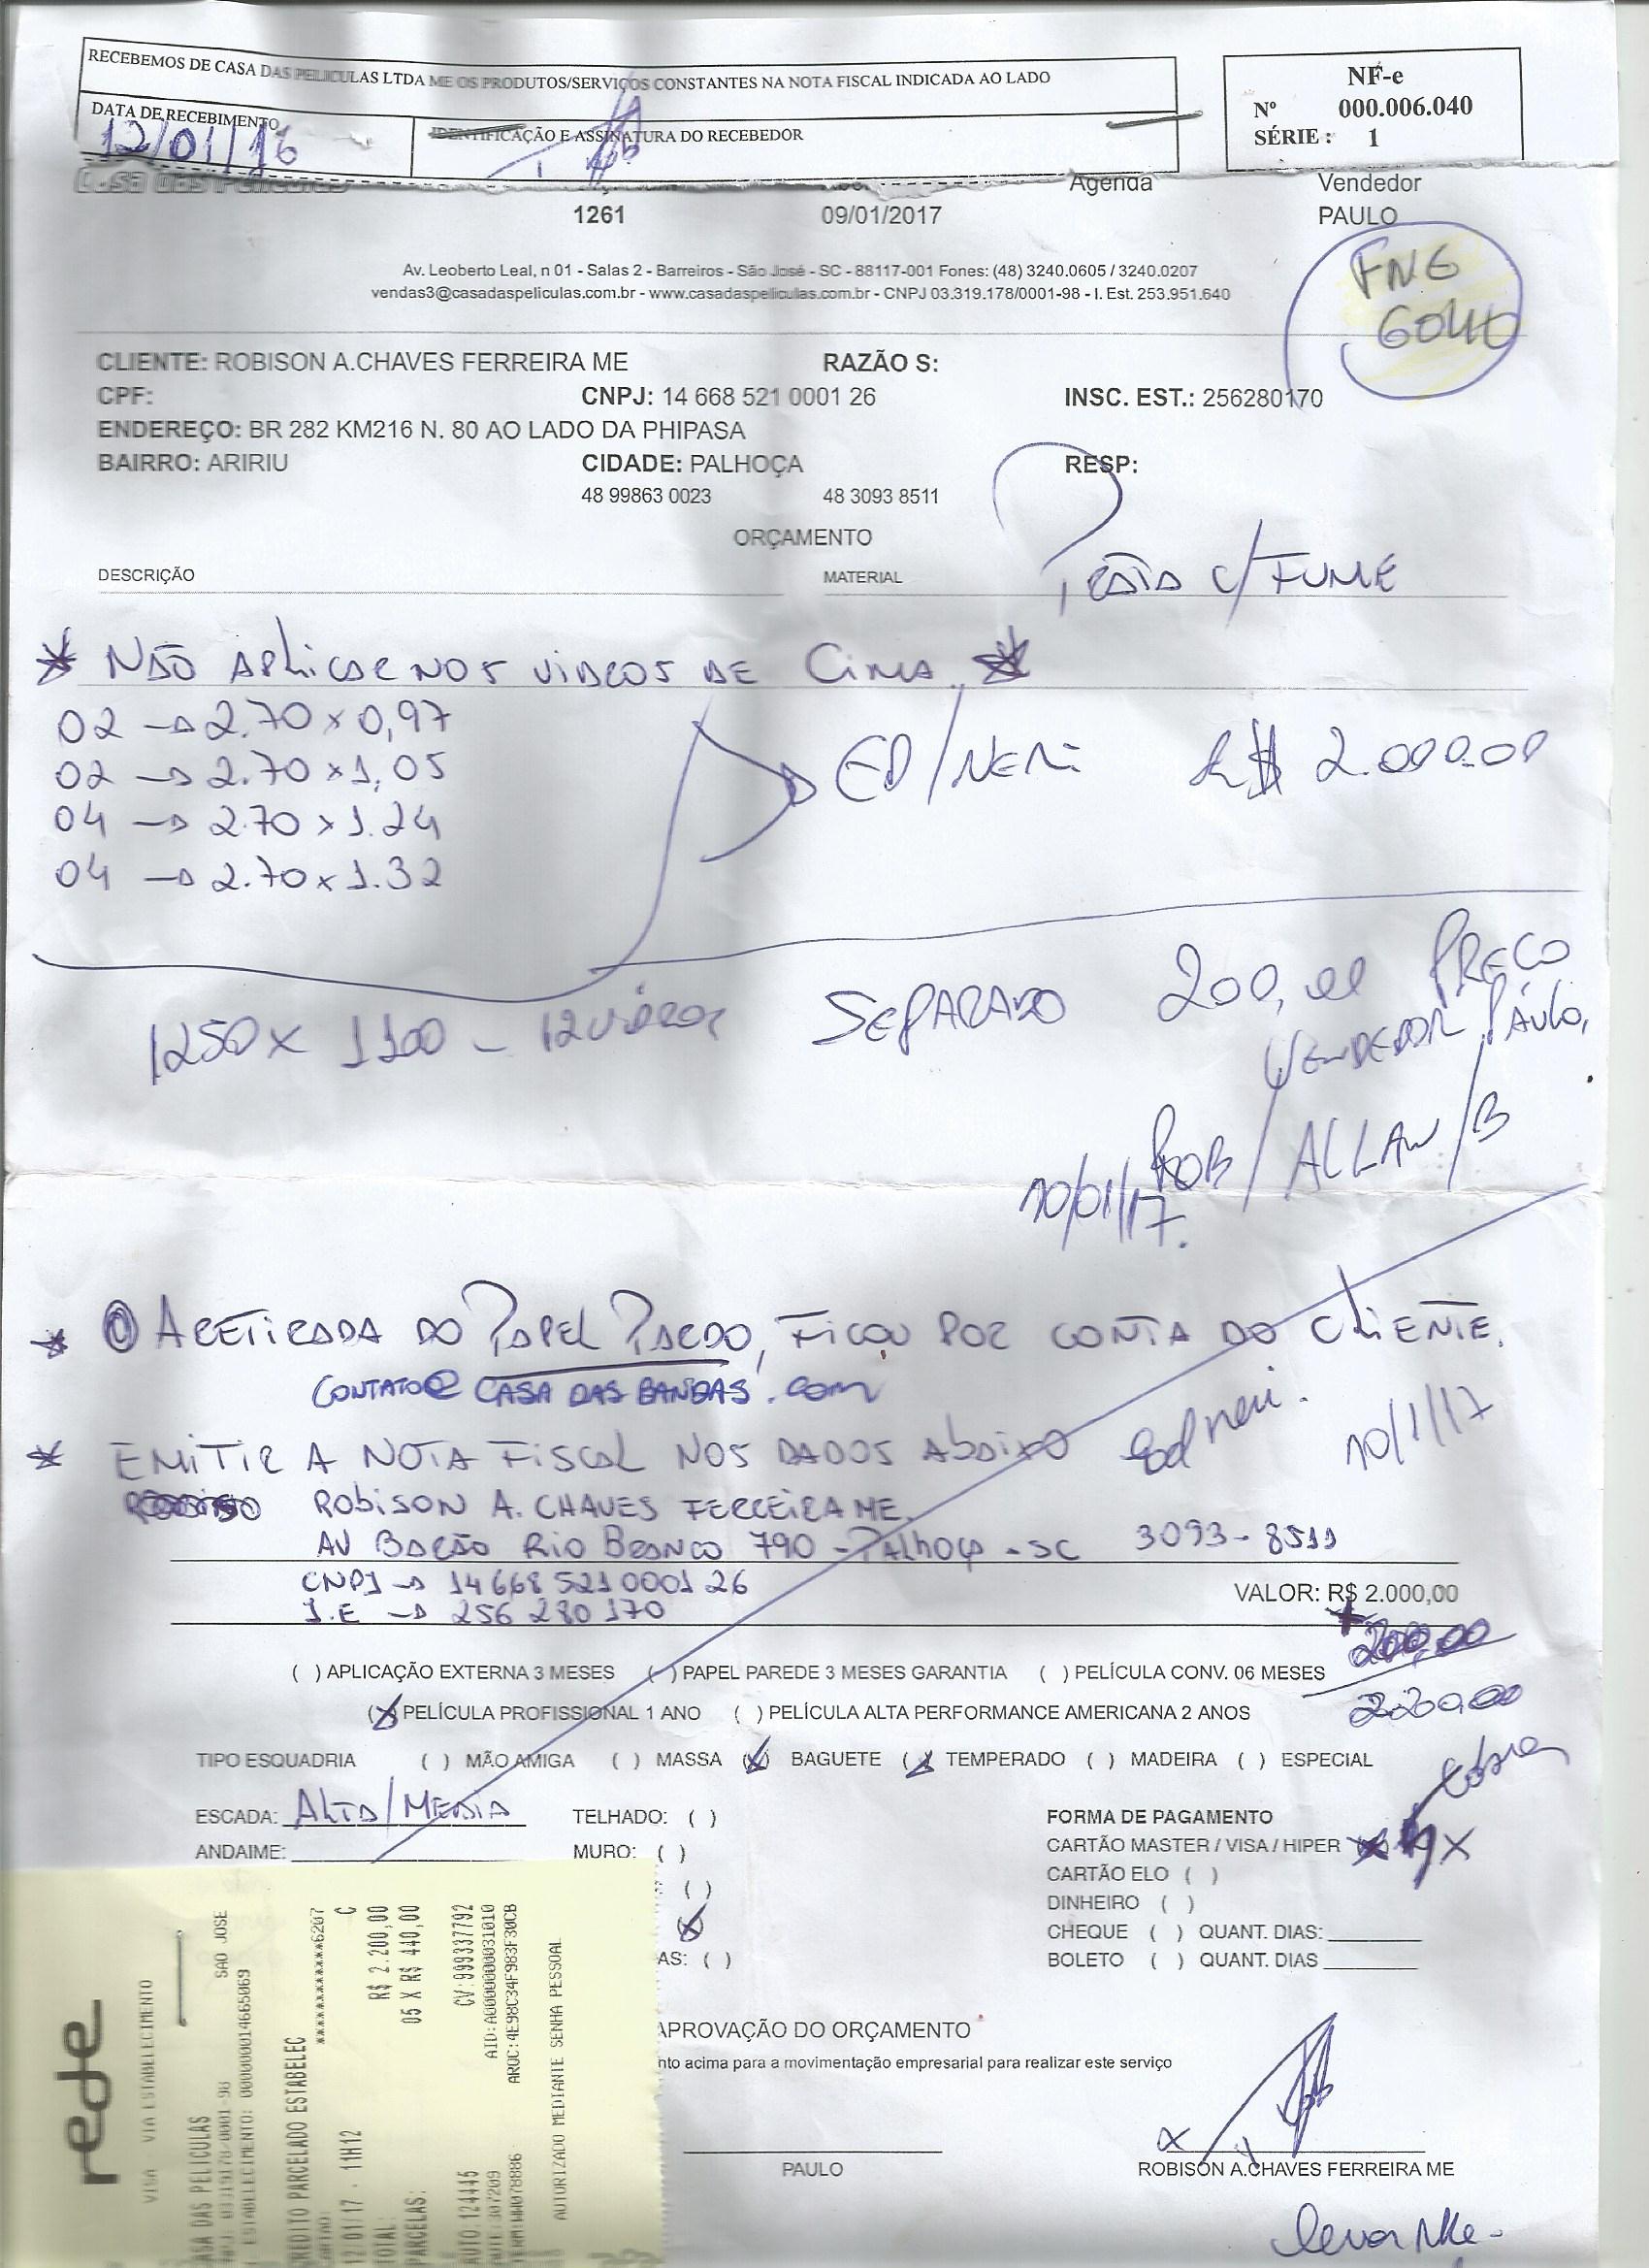 RECEBEMOS DE CASA DAS PELICULAS LTDA ME OS PRODUTOS/SERVIÇOS CONSTANTES NA NOTA FISCAL INDICADA AO LADO
DATA DE RECEBIMENTO
12/01/16
IDENTIFICAÇÃO E ASSINATURA DO RECEBEDOR
NF-e
Nº 000.006.040
SÉRIE : 1
Casa das Películas
Agenda Vendedor
1261 09/01/2017 PAULO
Av. Leoberto Leal, n 01 - Salas 2 - Barreiros - São José - SC - 88117-001 Fones: (48) 3240.0605 / 3240.0207
vendas3@casadaspeliculas.com.br - www.casadaspeliculas.com.br - CNPJ 03.319.178/0001-98 - I. Est. 253.951.640
FNG
6040
CLIENTE: ROBISON A.CHAVES FERREIRA ME RAZÃO S:
CPF: CNPJ: 14 668 521 0001 26 INSC. EST.: 256280170
ENDEREÇO: BR 282 KM216 N. 80 AO LADO DA PHIPASA
BAIRRO: ARIRIU CIDADE: PALHOÇA RESP:
48 99863 0023 48 3093 8511
ORÇAMENTO
DESCRIÇÃO MATERIAL PRATA C/ FUME
* NÃO APLICAR NOS VIDROS DE CIMA *
02 → 2.70 x 0,97
02 → 2.70 x 1,05
04 → 2.70 x 1.24
04 → 2.70 x 1.32
ED/NERI R$ 2.000.00
1250 x 1100 - 12 vidros
SEPARADO 200,00 PREÇO
VENDEDOR PAULO,
ROB / ALLAN / B
10/01/17.
* A RETIRADA DO PAPEL PARDO, FICOU POR CONTA DO CLIENTE.
CONTATO@CASADASBANDAS.com
* EMITIR A NOTA FISCAL NOS DADOS ABAIXO Edneri. 10/1/17
ROBISON A. CHAVES FERREIRA ME.
AV BARÃO RIO BRANCO 790 - PALHOÇA - SC 3093-8511
CNPJ → 14 668 521 0001 26
I.E → 256 280 170
VALOR: R$ 2.000,00
+ 200,00
2.200.00
( ) APLICAÇÃO EXTERNA 3 MESES ( ) PAPEL PAREDE 3 MESES GARANTIA ( ) PELÍCULA CONV. 06 MESES
(X) PELÍCULA PROFISSIONAL 1 ANO ( ) PELÍCULA ALTA PERFORMANCE AMERICANA 2 ANOS
TIPO ESQUADRIA ( ) MÃO AMIGA ( ) MASSA (X) BAGUETE (X) TEMPERADO ( ) MADEIRA ( ) ESPECIAL
ESCADA: ALTA/MEDIA TELHADO: ( )
ANDAIME: MURO: ( )
( )
(X)
AS: ( )
FORMA DE PAGAMENTO
CARTÃO MASTER / VISA / HIPER
CARTÃO ELO ( )
DINHEIRO ( )
CHEQUE ( ) QUANT. DIAS:
BOLETO ( ) QUANT. DIAS
APROVAÇÃO DO ORÇAMENTO
nto acima para a movimentação empresarial para realizar este serviço
PAULO
ROBISON A.CHAVES FERREIRA ME
rede
VISA VIA ESTABELECIMENTO
CASA DAS PELICULAS
03319178/0001-98 SAO JOSE
ESTABELECIMENTO: 000000014665069
CREDITO PARCELADO ESTABELEC
CARTAO: ************6207
12/01/17 - 11H12 C
TOTAL: R$ 2.200,00
PARCELAS: 05 X R$ 440,00
AUTO:124445 CV:999337792
AID:A0000000031010
TERM:WW078886 ARQC:4E98C34F983F30CB
AUTORIZADO MEDIANTE SENHA PESSOAL